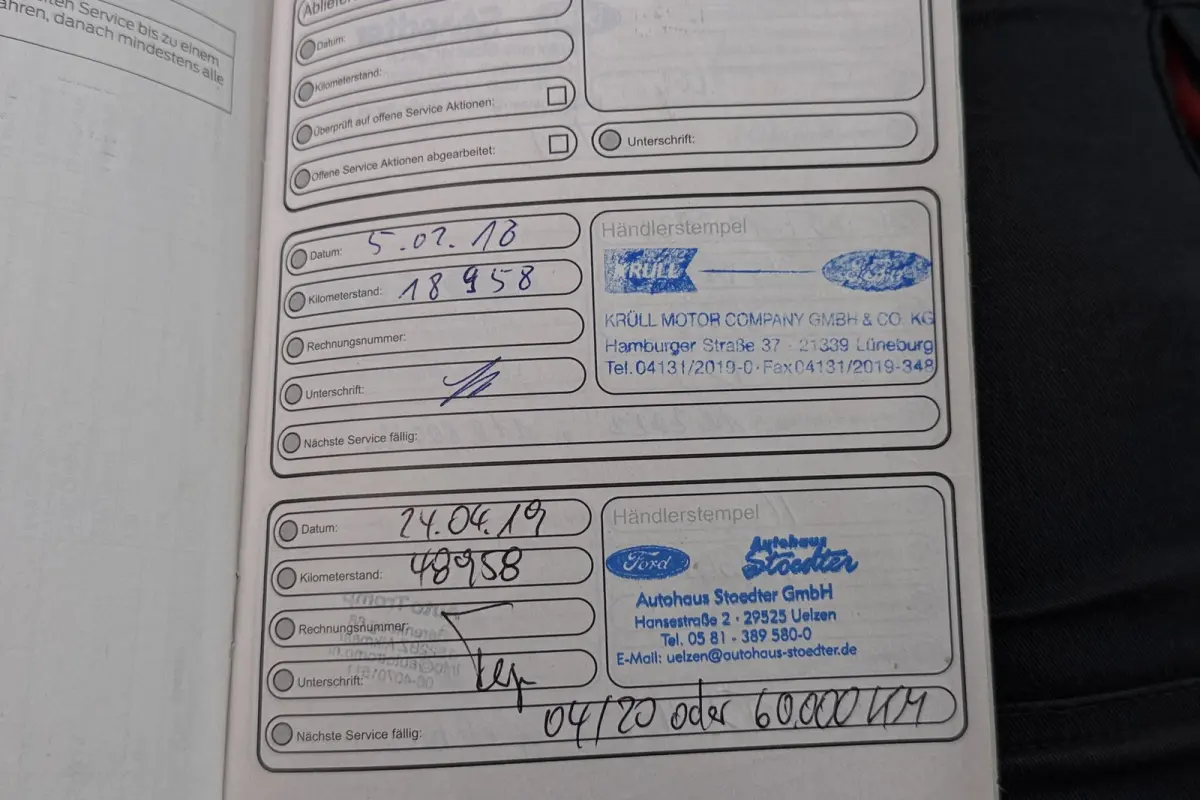 ten Service bis zu einem
ahren, danach mindestens alle
Datum:
Kilometerstand:
Überprüft auf offene Service Aktionen:
Offene Service Aktionen abgearbeitet:
Unterschrift:
Datum: 5.02.18
Kilometerstand: 18958
Rechnungsnummer:
Unterschrift:
Nächste Service fällig:
Händlerstempel
KRÜLL Ford
KRÜLL MOTOR COMPANY GMBH & CO. KG
Hamburger Straße 37 · 21339 Lüneburg
Tel. 04131/2019-0 · Fax 04131/2019-348
Datum: 24.04.19
Kilometerstand: 48958
Rechnungsnummer:
Unterschrift:
Nächste Service fällig: 04/20 oder 60.000 KM
Händlerstempel
Ford Autohaus
Stoedter
Autohaus Stoedter GmbH
Hansestraße 2 · 29525 Uelzen
Tel. 05 81 - 389 580-0
E-Mail: uelzen@autohaus-stoedter.de